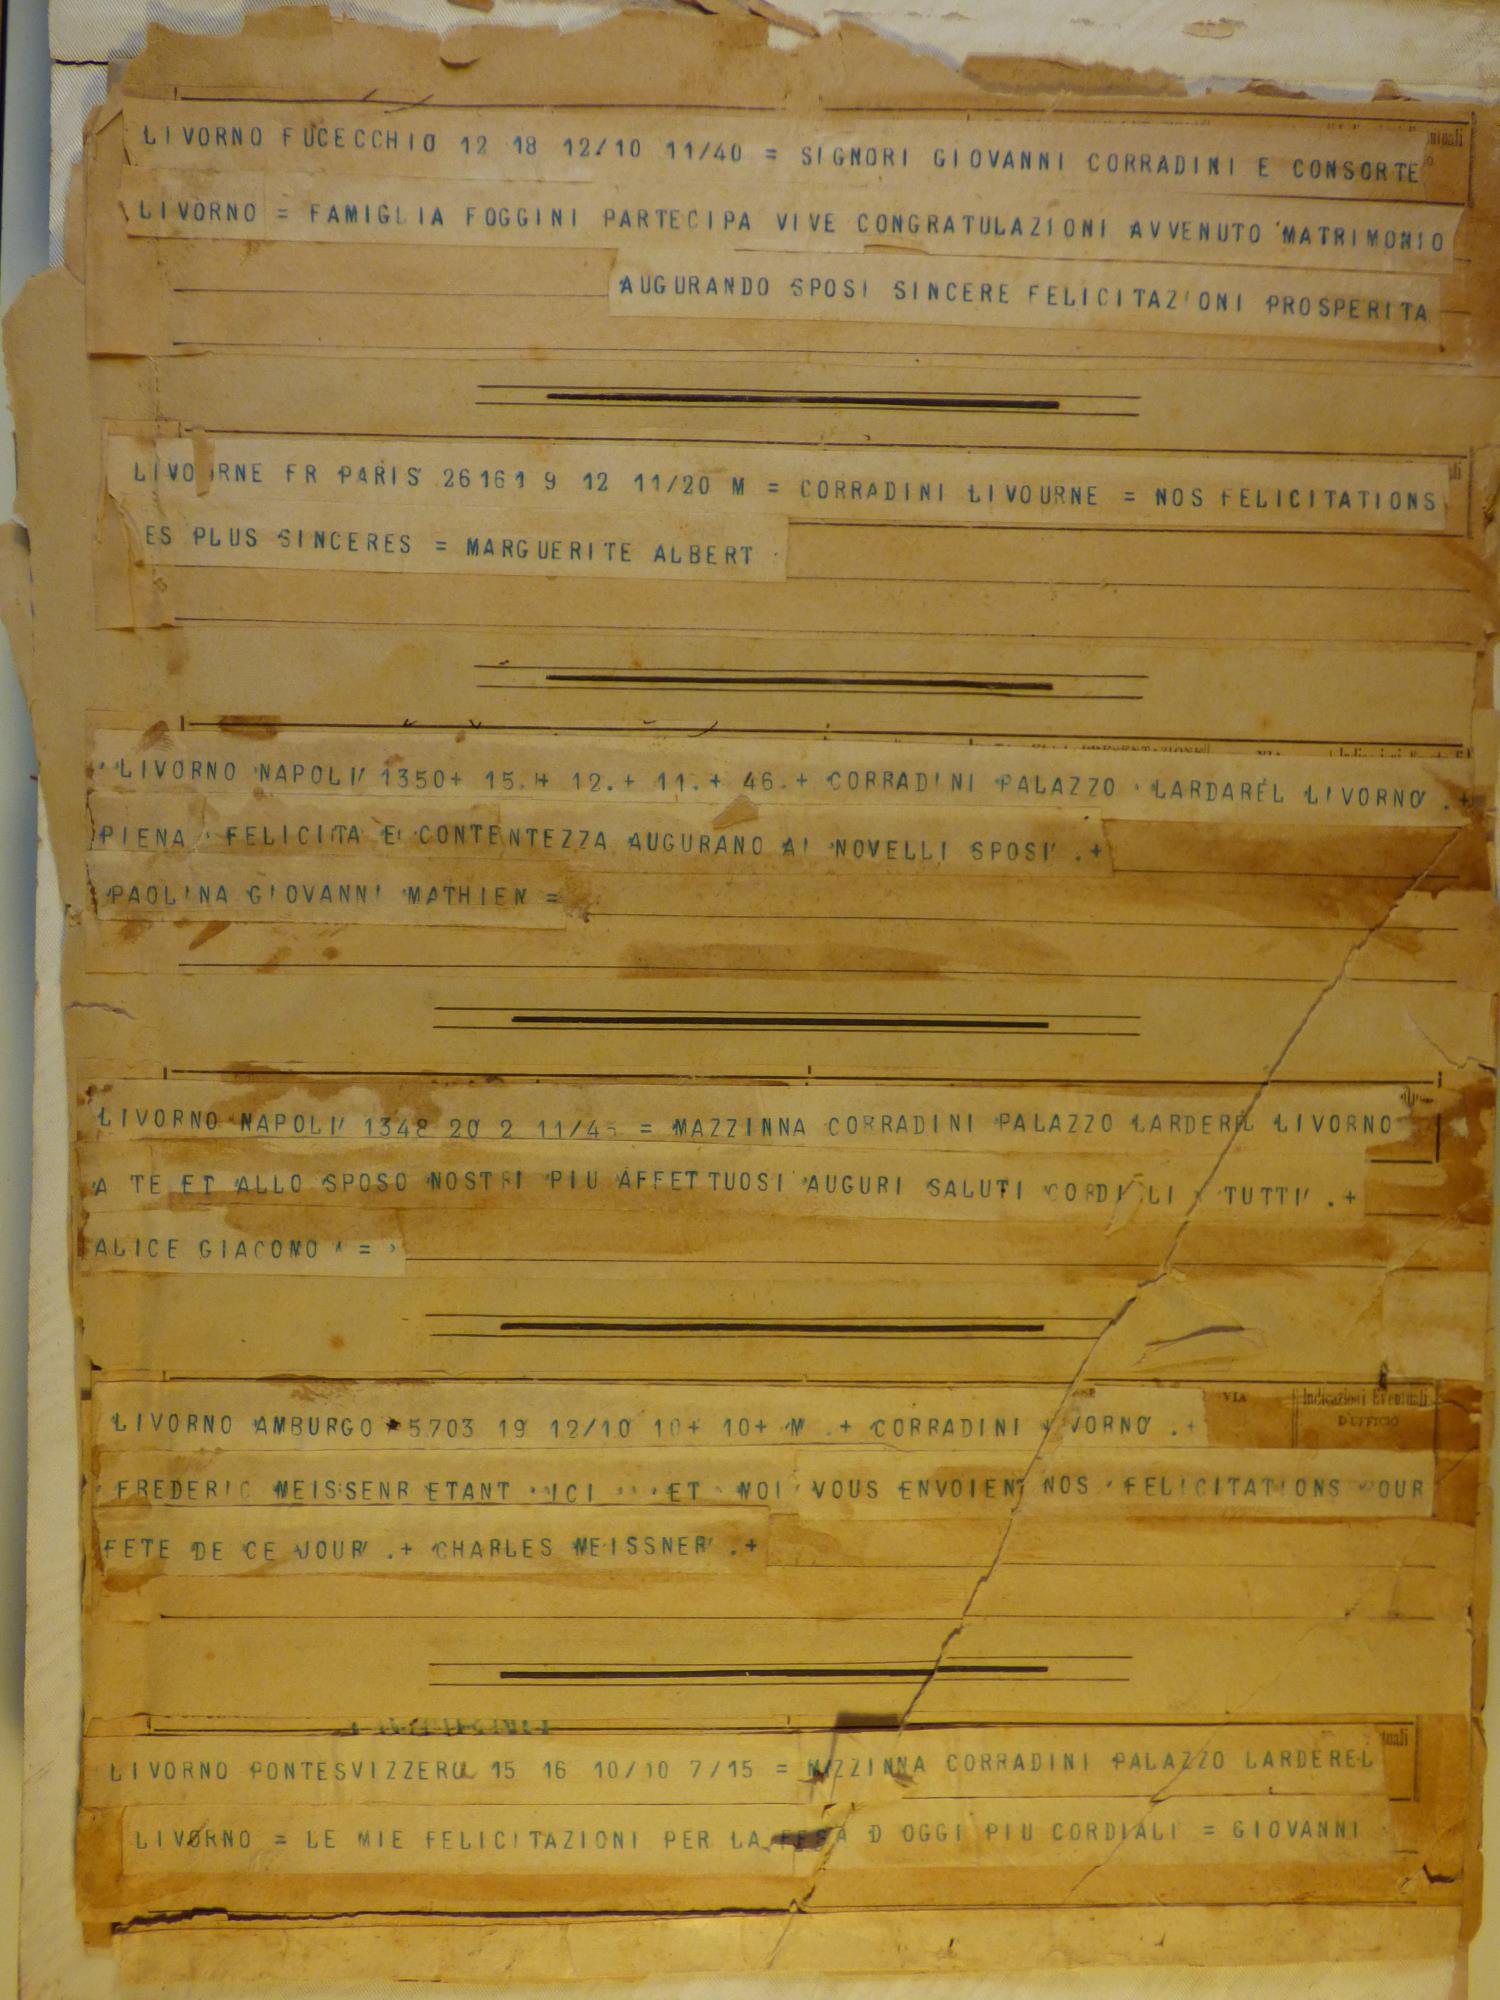 LIVORNO FUCECCHIO 12 18 12/10 11/40 = SIGNORI GIOVANNI CORRADINI E CONSORTE
LIVORNO = FAMIGLIA FOGGINI PARTECIPA VIVE CONGRATULAZIONI AVVENUTO MATRIMONIO
AUGURANDO SPOSI SINCERE FELICITAZIONI PROSPERITA
LIVOURNE FR PARIS 26161 9 12 11/20 M = CORRADINI LIVOURNE = NOS FELICITATIONS
ES PLUS SINCERES = MARGUERITE ALBERT
LIVORNO NAPOLI 1350+ 15.+ 12.+ 11.+ 46.+ CORRADINI PALAZZO LARDAREL LIVORNO .+
PIENA FELICITA E CONTENTEZZA AUGURANO AI NOVELLI SPOSI .+
PAOLINA GIOVANNI MATHIEN =
LIVORNO NAPOLI 1348 20 2 11/45 = MAZZINNA CORRADINI PALAZZO LARDEREL LIVORNO
A TE ET ALLO SPOSO NOSTRI PIU AFFETTUOSI AUGURI SALUTI CORDIALI TUTTI .+
ALICE GIACOMO =
VIA Indicazioni Eventuali
D'UFFICIO
LIVORNO AMBURGO 5703 19 12/10 10+ 10+ M .+ CORRADINI VORNO .+
FREDERIC MEISSENR ETANT ICI ET MOI VOUS ENVOIENT NOS FELICITATIONS POUR
FETE DE CE JOUR .+ CHARLES MEISSNER .+
LIVORNO PONTESVIZZERO 15 16 10/10 7/15 = MAZZINNA CORRADINI PALAZZO LARDEREL
LIVORNO = LE MIE FELICITAZIONI PER LA D OGGI PIU CORDIALI = GIOVANNI